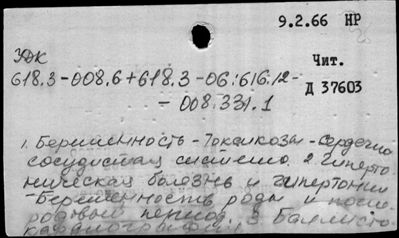 9.2.66 НР
УДК
Чит.
618.3-008.6+618.3-06:616.12-
Д 37603
- 008.331.1
1. Беременность - Токсикозы - Сердечно
сосудистая система. 2. Гиперто
ническая болезнь и гипертонии
- Беременность, роды и после
родовый период. 3. Баллисто
кардиография